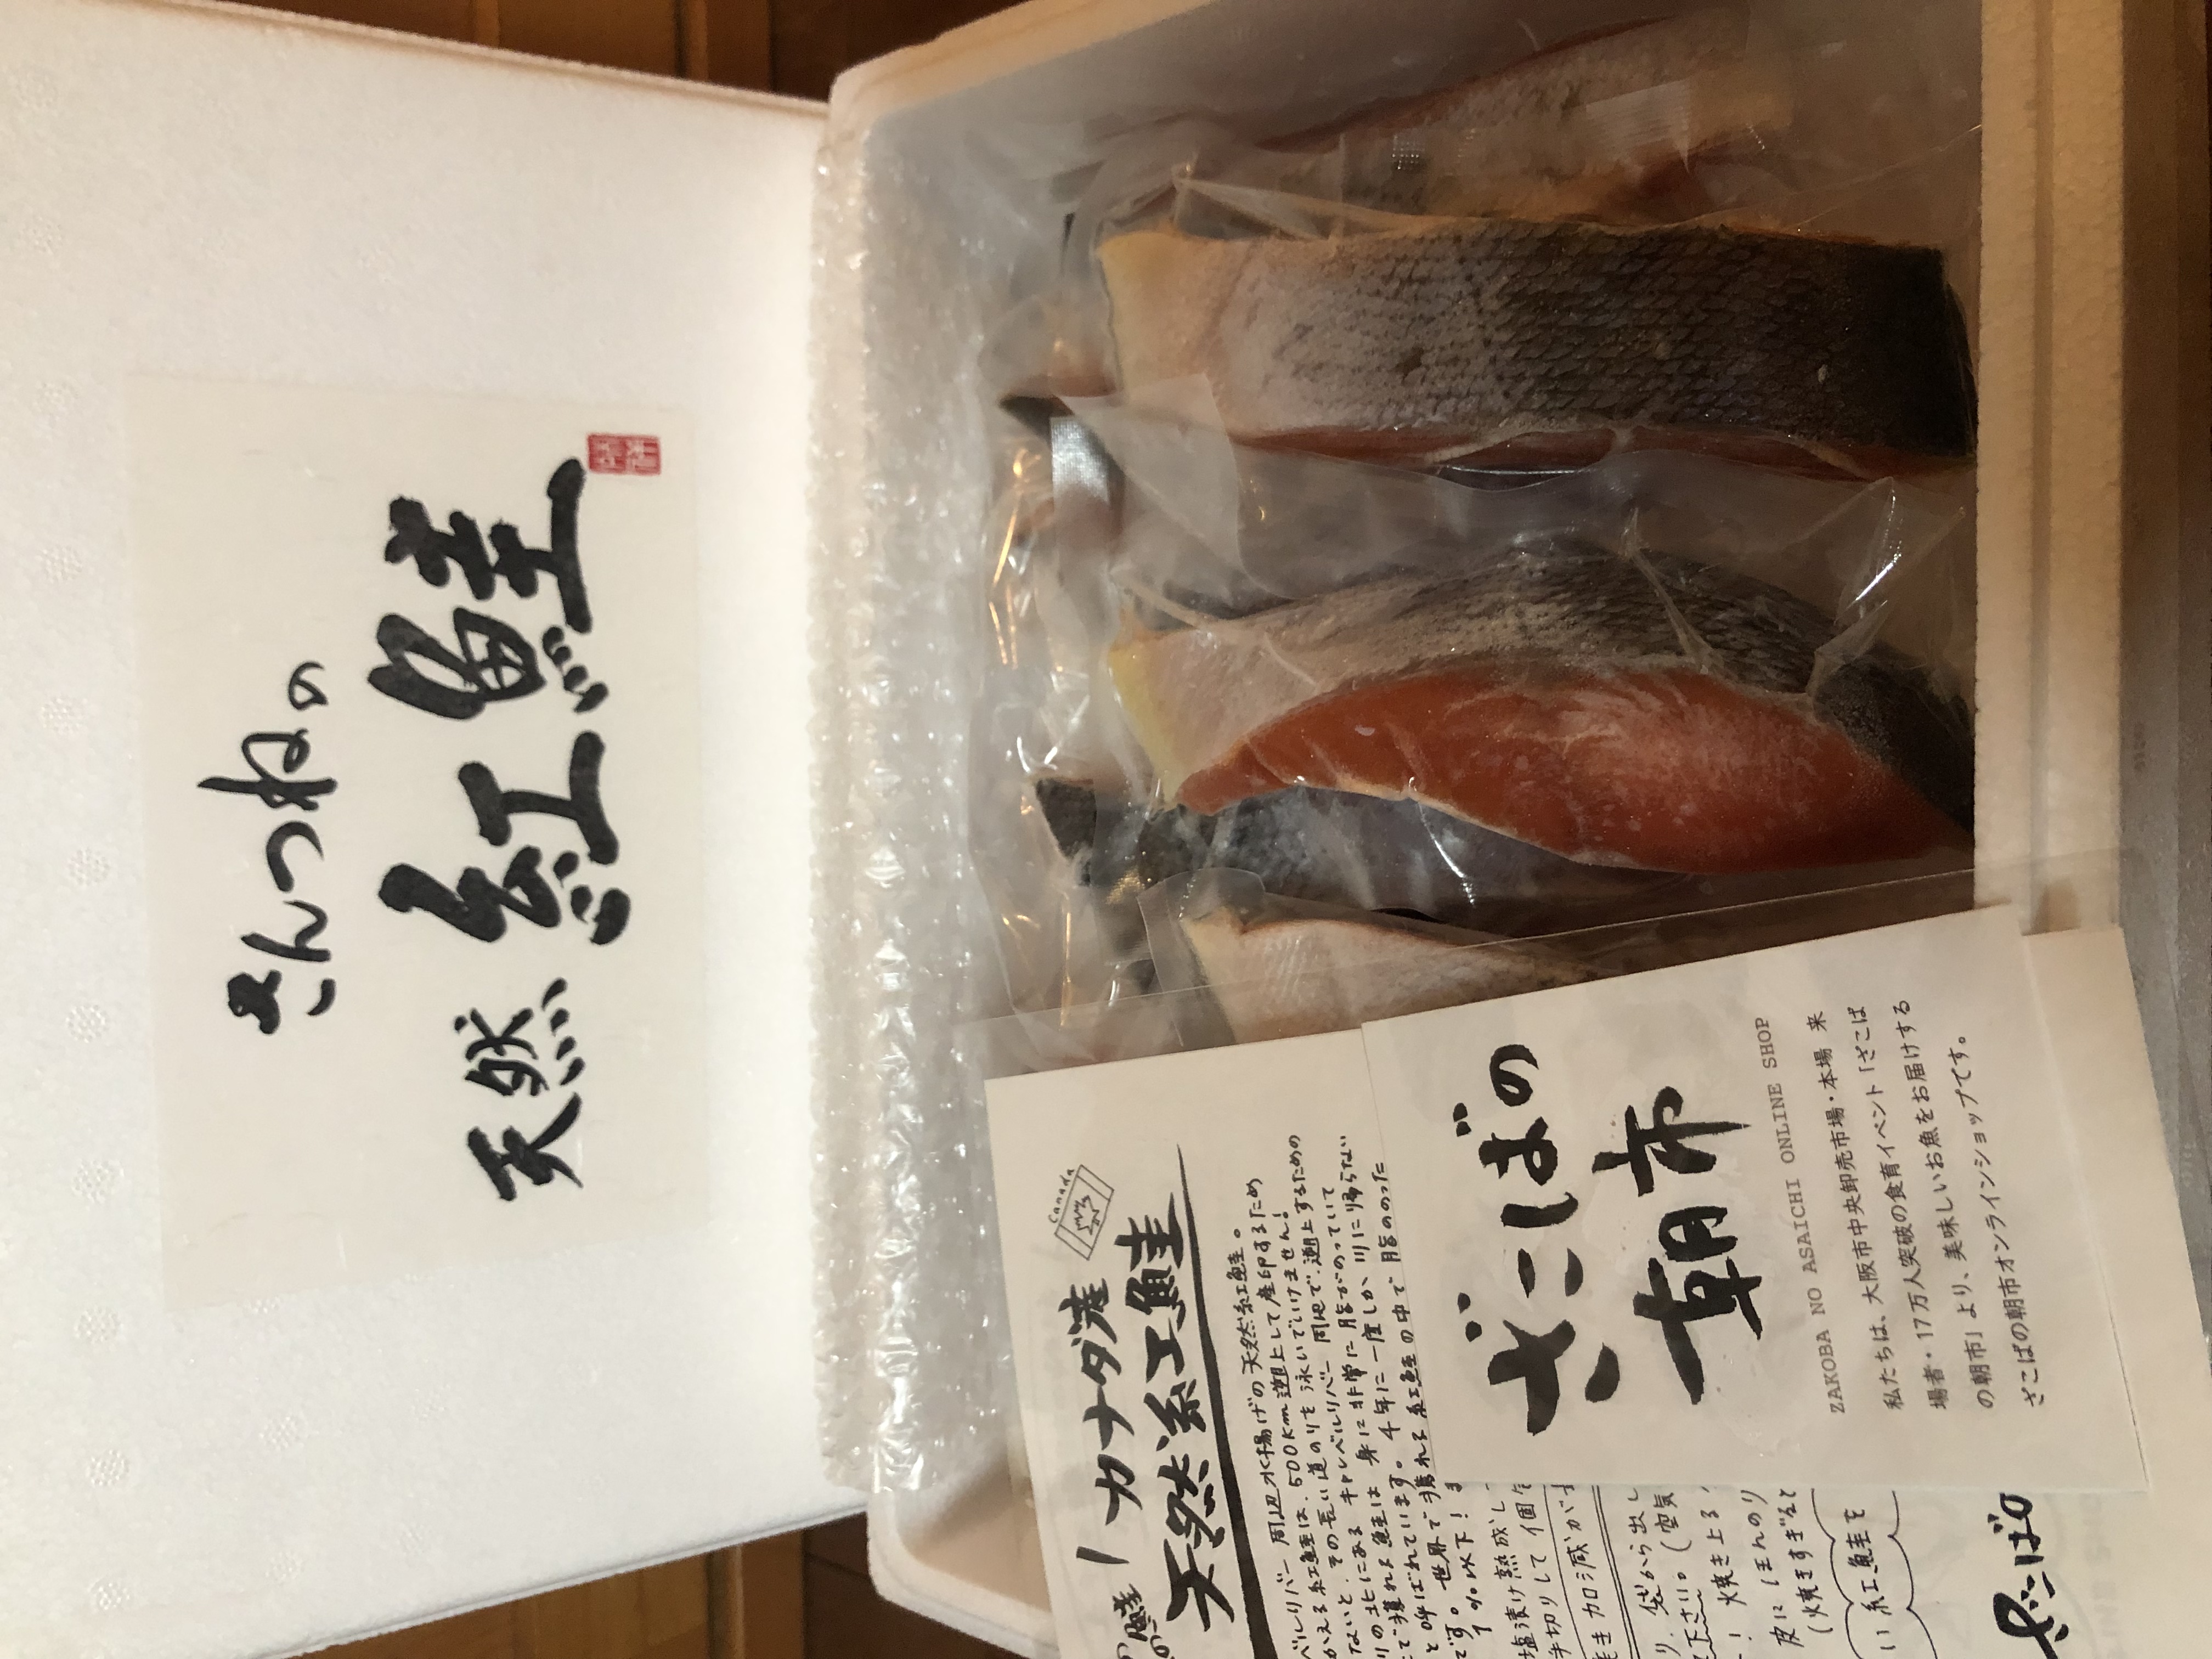 ざんつねの
天然 紅鮭
Canada
カナダ産
天然紅鮭
ベルリバー周辺水揚げの天然紅鮭。
かえる紅鮭は、500km遡上して産卵するため
ないと、その長い道のりを泳いでいけません!
リの北にある キャレベルリバー周辺で、遡上するための
こで獲れる鮭は 身に非常に脂がのっていて
と呼ばれています。4年に一度しか、川に帰らない
です。世界で獲れる紅鮭の中で 脂ののった
1%以下!
塩漬け熟成し
手切りして 個
き加減が
り、袋から出し
下さい。(空気
! 焼き上る
皮に ほんのり
(焼きすぎると
い紅鮭を
ざこばの
ざこばの
朝市
ZAKOBA NO ASAICHI ONLINE SHOP
私たちは、大阪市中央卸売市場・本場 来
場者・17万人突破の食育イベント「ざこば
の朝市」より、美味しいお魚をお届けする
ざこばの朝市オンラインショップです。